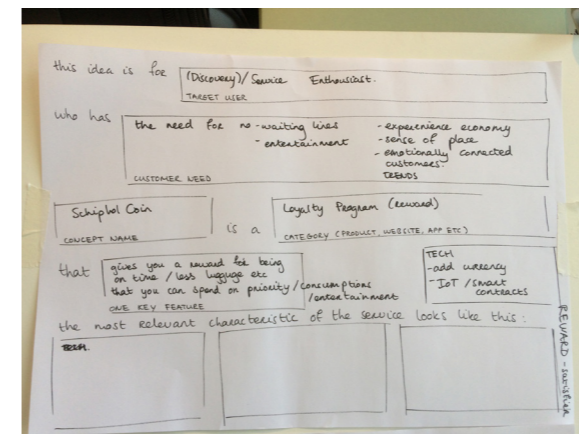 this idea is for
(Discovery)/Service Enthusiast.
TARGET USER
who has
the need for no-waiting lines
- entertainment
CUSTOMER NEED
- experenience economy
- sense of place
- emotionally connected
customers.
TRENDS
Schiphol Coin
CONCEPT NAME
is a
Loyalty Program (reward)
CATEGORY (PRODUCT, WEBSITE, APP ETC)
that
gives you a reward for being
on time / less luggage etc
that you can spend on priority/consumptions
/entertainment
ONE KEY FEATURE
TECH
-add currency
- IoT / smart
contracts
the most relevant characteristic of the service looks like this:
REWARD - satisfier